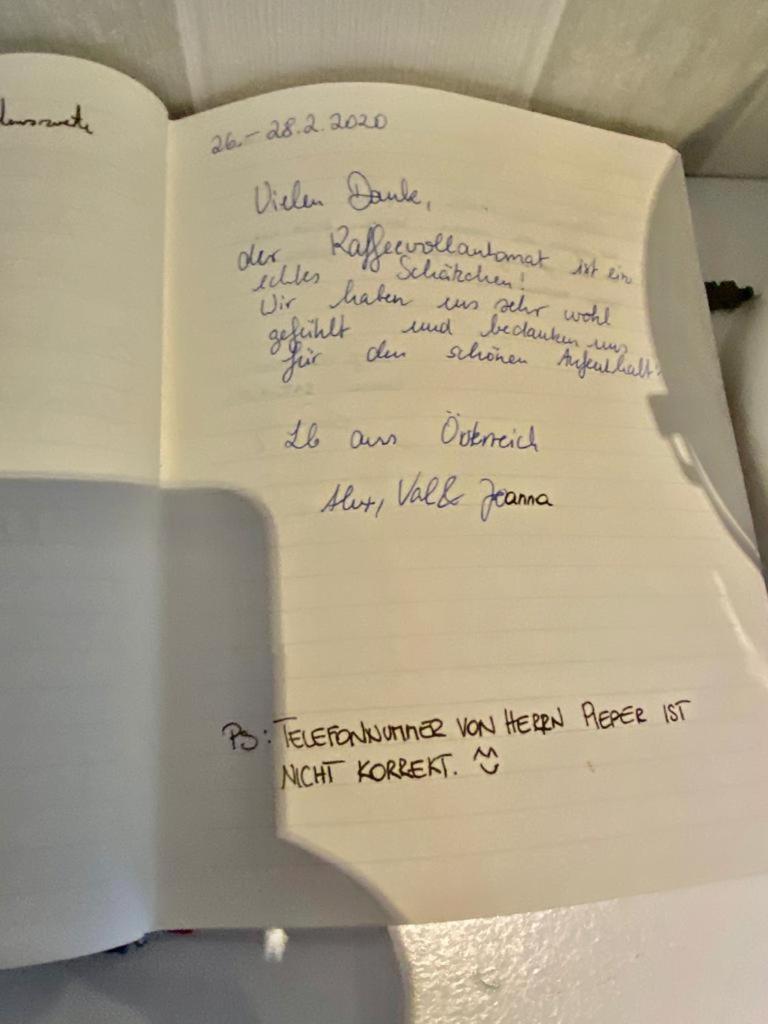 26.-28.2.2020
Vielen Danke,
der Kaffeevollautomat ist ein
echtes Schätzchen!
Wir haben uns sehr wohl
gefühlt und bedanken uns
für den schönen Aufenthalt!
LG aus Österreich
Alex, Val & Joanna
PS: TELEFONNUMMER VON HERRN PIEPER IST
NICHT KORREKT.